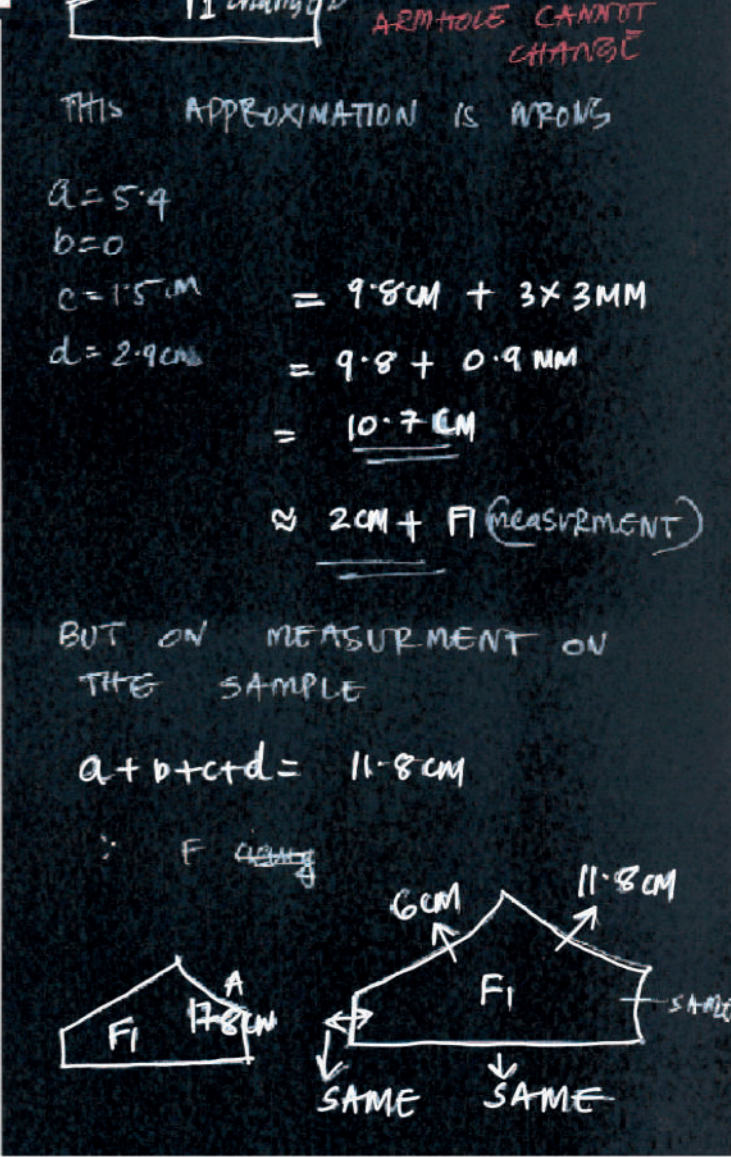 ARMHOLE CANNOT
CHANGE
THIS APPROXIMATION IS WRONG
a = 5.4
b = 0
c = 1.5 CM
d = 2.9 cm
= 9.8 CM + 3 X 3 MM
= 9.8 + 0.9 MM
= 10.7 CM
≈ 2 CM + F1 (MEASURMENT)
BUT ON MEASURMENT ON
THE SAMPLE
a + b + c + d = 11.8 CM
∴ F
6 CM
11.8 CM
A
F1
F1
SAME
SAME
SAME